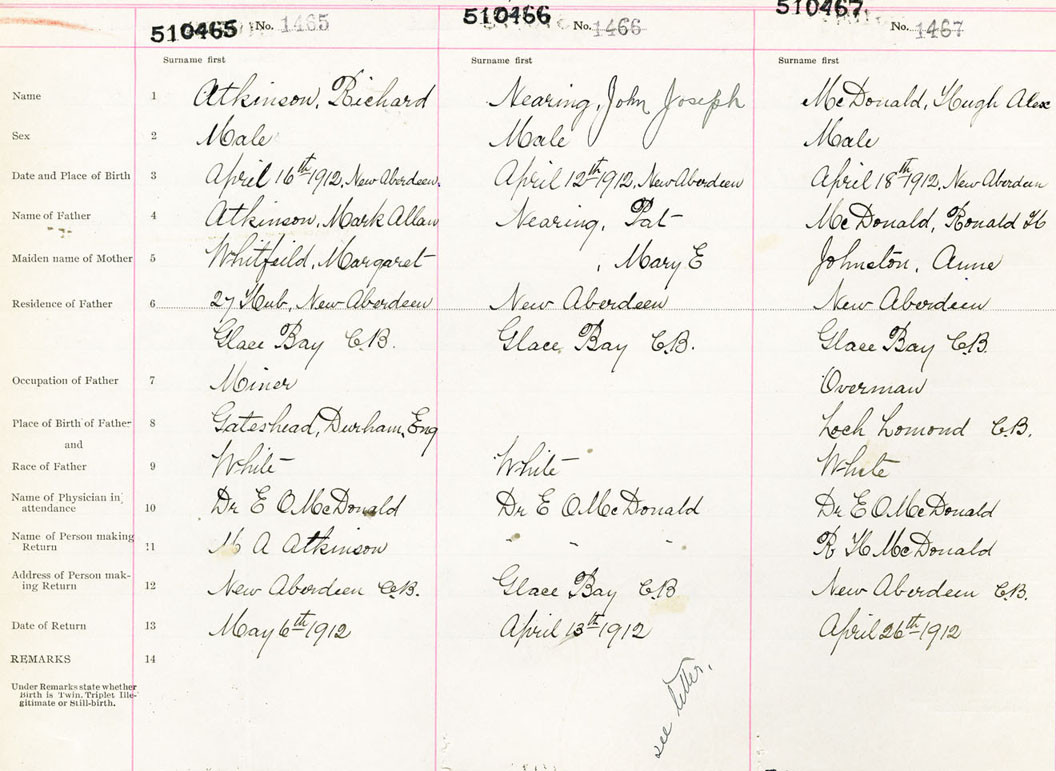 510465 No. 1465
510466 No. 1466
510467 No. 1467
Surname first Surname first Surname first
Name 1 Atkinson, Richard Nearing, John Joseph McDonald, Hugh Alex
Sex 2 Male Male Male
Date and Place of Birth 3 April 16th 1912, New Aberdeen. April 12th 1912, New Aberdeen April 18th 1912, New Aberdeen
Name of Father 4 Atkinson, Mark Allan Nearing, Pat McDonald, Ronald H
Maiden name of Mother 5 Whitfeild, Margaret , Mary E Johnston, Anne
Residence of Father 6 27 Hub, New Aberdeen New Aberdeen New Aberdeen
Glace Bay C.B. Glace Bay C.B. Glace Bay C.B.
Occupation of Father 7 Miner Overman
Place of Birth of Father 8 Gateshead, Durham, Eng Loch Lomond C.B.
and
Race of Father 9 White White White
Name of Physician in attendance 10 Dr E O McDonald Dr E O McDonald Dr E O McDonald
Name of Person making Return 11 M A Atkinson - - - R H McDonald
Address of Person making Return 12 New Aberdeen C.B. Glace Bay C.B New Aberdeen C.B.
Date of Return 13 May 6th 1912 April 13th 1912 April 26th 1912
REMARKS 14
Under Remarks state whether
Birth is Twin, Triplet Ille-
gitimate or Still-birth.
see letter.